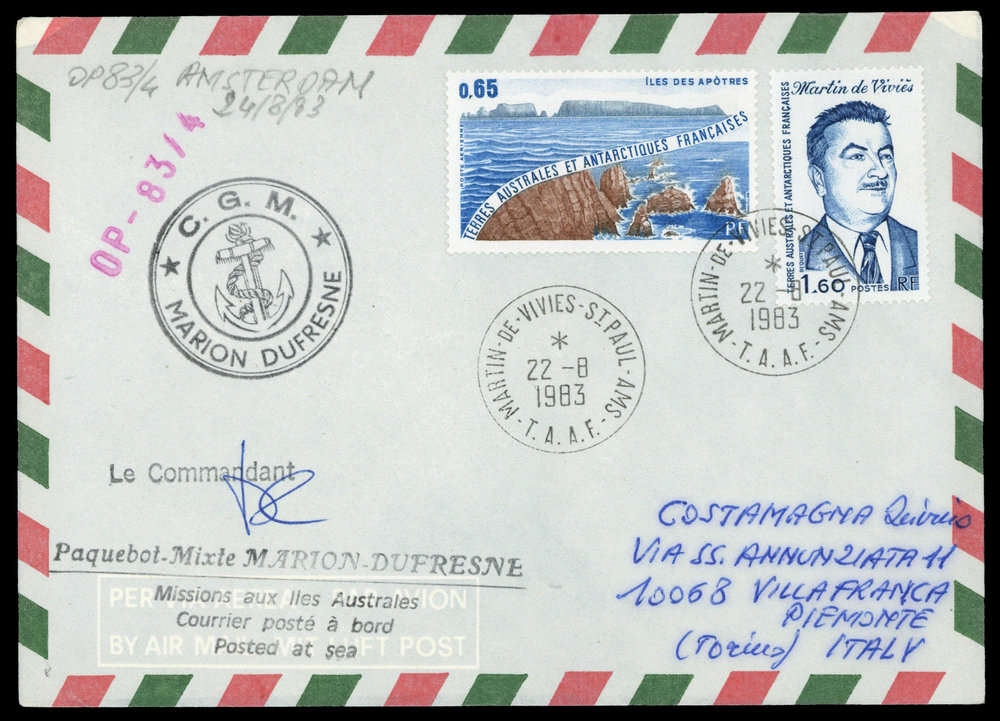 OP83/4 AMSTERDAM
24/8/83
OP-83/4
C. G. M.
MARION DUFRESNE
0,65
ÎLES DES APÔTRES
TERRES AUSTRALES ET ANTARCTIQUES FRANÇAISES
RF
Martin de Viviès
TERRES AUSTRALES ET ANTARCTIQUES FRANÇAISES
1,60 POSTES RF
MARTIN-DE-VIVIES-ST PAUL-AMS
*
22 -8
1983
-T.A.A.F.-
MARTIN-DE-VIVIES-ST PAUL-AMS
*
22 -8
1983
-T.A.A.F.-
Le Commandant
Paquebot-Mixte MARION-DUFRESNE
Missions aux Iles Australes
Courrier posté à bord
Posted at sea
PER VIA AEREA PAR AVION
BY AIR MAIL MIT LUFTPOST
COSTAMAGNA
VIA SS. ANNUNZIATA 11
10068 VILLAFRANCA
PIEMONTE
(Torino) ITALY